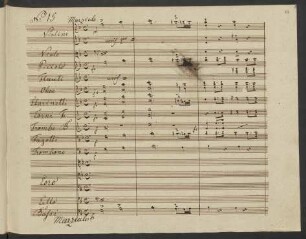 Nº 15 Marziale
Violini
Viole
Piccolo
Flauti
Oboe
Clarinetti
Corni
Trombe
Fagotti
Tromboni
Coro
Bassi
Marziale